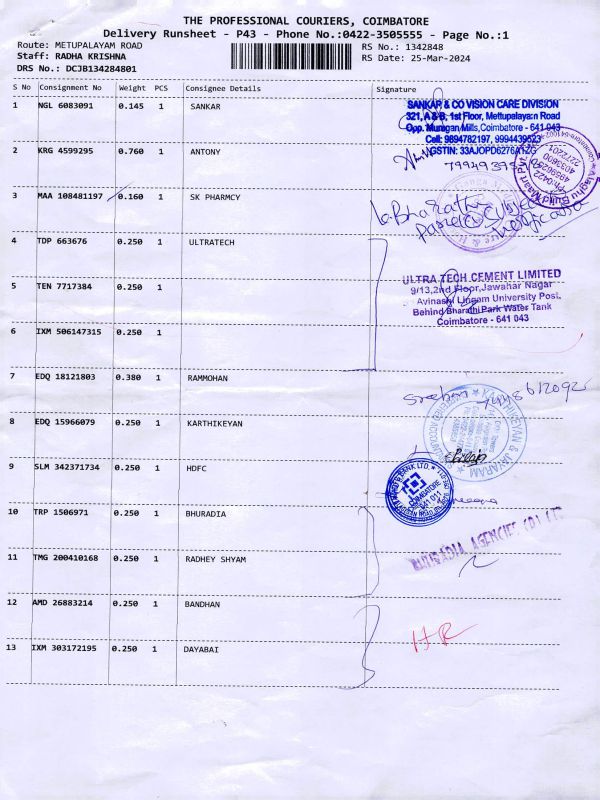 THE PROFESSIONAL COURIERS, COIMBATORE
Delivery Runsheet - P43 - Phone No.:0422-3505555 - Page No.:1
Route: METUPALAYAM ROAD
RS No.: 1342848
Staff: RADHA KRISHNA
RS Date: 25-Mar-2024
DRS No.: DCJB134284801
S No Consignment No Weight PCS Consignee Details Signature
1 NGL 6083091 0.145 1 SANKAR
SANKAR & CO VISION CARE DIVISION
321, A & B, 1st Floor, Mettupalayam Road
Opp. Murugan Mills, Coimbatore - 641 043
Cell: 9894782197, 9994439523
GSTIN: 33AJOPD6276A1ZG
2 KRG 4599295 0.760 1 ANTONY
3 MAA 108481197 0.160 1 SK PHARMCY
4 TDP 663676 0.250 1 ULTRATECH
ULTRA TECH CEMENT LIMITED
9/13, 2nd Floor, Jawahar Nagar
Avinashi Lingam University Post,
Behind Bharathi Park Water Tank
Coimbatore - 641 043
5 TEN 7717384 0.250 1
6 IXM 506147315 0.250 1
7 EDQ 18121803 0.380 1 RAMMOHAN
8 EDQ 15966079 0.250 1 KARTHIKEYAN
KARTHIKEYAN & JAYARAM
9 SLM 342371734 0.250 1 HDFC
10 TRP 1506971 0.250 1 BHURADIA
AGENCIES
11 TMG 200410168 0.250 1 RADHEY SHYAM
12 AMD 26883214 0.250 1 BANDHAN
HR
13 IXM 303172195 0.250 1 DAYABAI